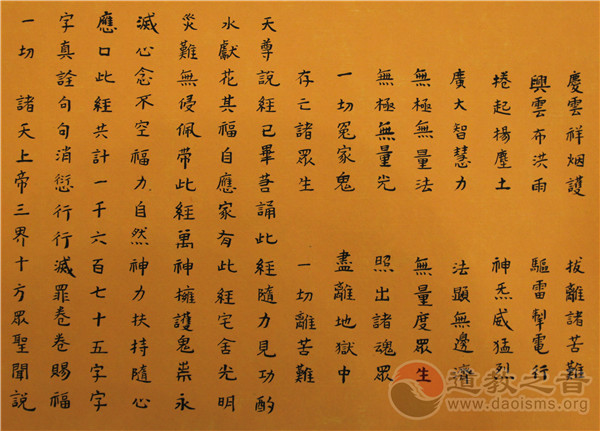 慶雲祥烟護　拔離諸苦難
興雲布洪雨　驅雷掣電行
捲起楊塵土　神炁威猛烈
廣大智慧力　法顯無邊濟
無極無量法　無量度眾生
無極無量光　照出諸魂眾
一切冤家鬼　盡離地獄中
存亡諸眾生　一切離苦難
天尊說經已畢善誦此經隨力見功酌
水獻花其福自應家有此經宅舍光明
災難無侵佩帶此經萬神擁護鬼祟永
滅心念不空福力自然神力扶持隨心
應口此經共計一千六百七十五字字
字真詮句句消愆行行滅罪卷卷賜福
一切　諸天上帝三界十方眾聖聞說
道教之音
www.daoisms.org